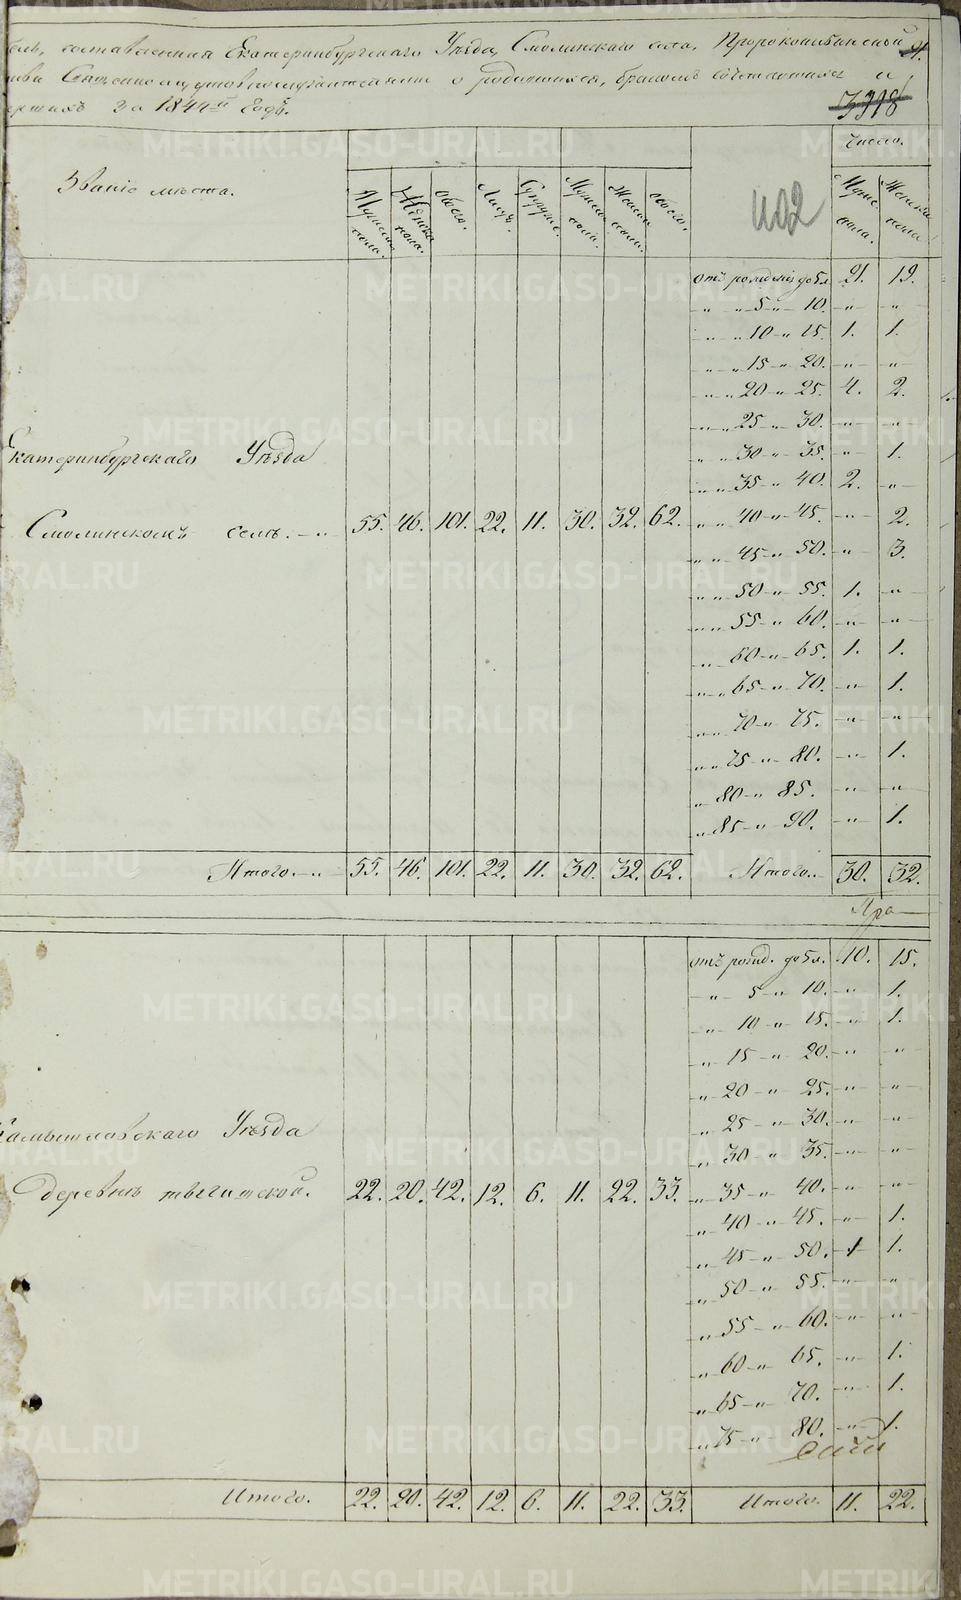 составленная Екатеринбургскаго Уѣзда, Смолинскаго села, Пророкоильинской
о родившихся, бракомъ сочетавшихся и
за 1844й Годъ.
3318
число.
Званіе мѣста.
Мужеска пола.
Женска пола.
обоего.
Лицъ.
Супруж.
Мужеска пола.
Женска пола.
обоего.
1102
Муж. пола.
Женска пола.
отъ рожденія до 5 л. 21. 19.
„ „ 5 „ 10. „ „
„ „ 10 „ 15. 1. 1.
„ „ 15 „ 20. „ „
„ „ 20 „ 25. 4. 2.
„ „ 25 „ 30. „ „
Екатеринбургскаго Уѣзда
„ „ 30 „ 35. „ 1.
„ „ 35 „ 40. 2. „
Смолинскомъ селѣ. 55. 46. 101. 22. 11. 30. 32. 62. „ „ 40 „ 45. „ 2.
„ „ 45 „ 50. „ 3.
„ „ 50 „ 55. 1. „
„ „ 55 „ 60. „ „
„ 60 „ 65. 1. 1.
„ „ 65 „ 70. „ 1.
„ „ 70 „ 75. „ „
„ „ 75 „ 80. „ 1.
„ 80 „ 85. „ „
„ 85 „ 90. „ 1.
Итого. 55. 46. 101. 22. 11. 30. 32. 62. Итого. 30. 32.
Пра
отъ рожд. до 5 л. 10. 15.
„ 5 „ 10. „ 1.
„ 10 „ 15. „ 1.
„ 15 „ 20. „ „
„ 20 „ 25. „ „
„ 25 „ 30. „ „
Камышловскаго Уѣзда
„ 30 „ 35. „ „
деревнѣ 22. 20. 42. 12. 6. 11. 22. 33. „ 35 „ 40. „ „
„ 40 „ 45. „ 1.
„ 45 „ 50. 1 1.
„ 50 „ 55. „ „
„ 55 „ 60. „ „
„ 60 „ 65. „ 1.
„ 65 „ 70. „ 1.
„ 75 „ 80. „ 1.
Итого. 22. 20. 42. 12. 6. 11. 22. 33. Итого. 11. 22.
METRIKI.GASO-URAL.RU